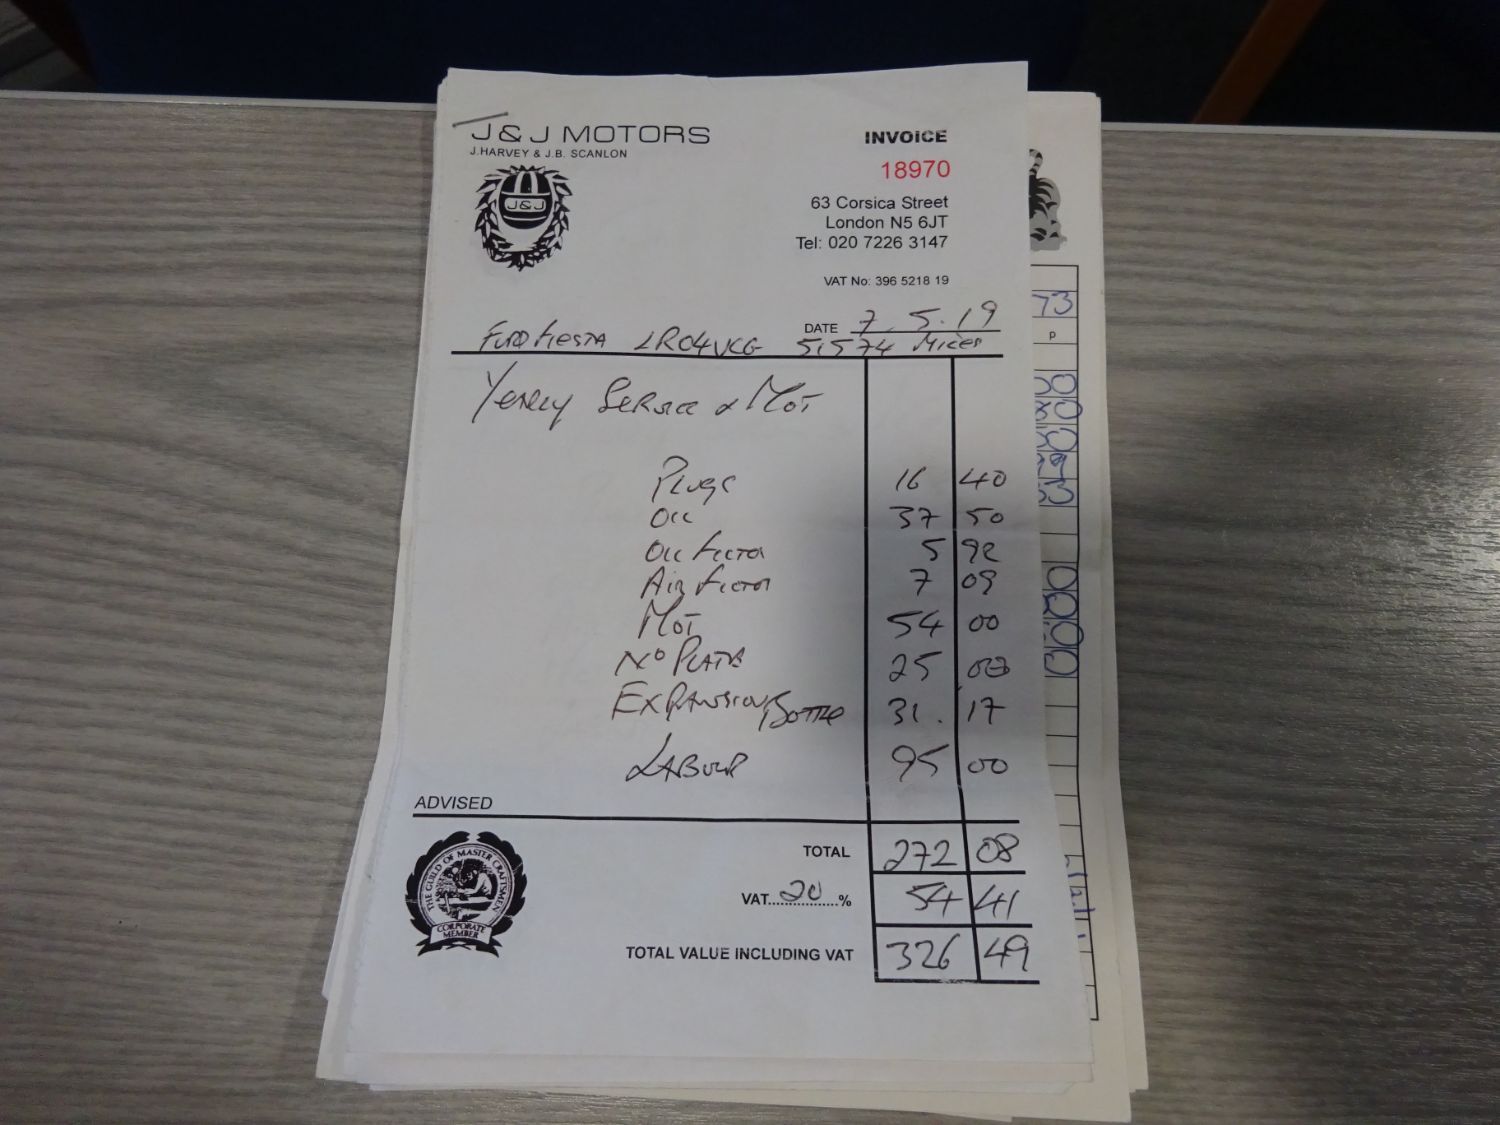 J&J MOTORS
J.HARVEY & J.B. SCANLON
J&J
INVOICE
18970
63 Corsica Street
London N5 6JT
Tel: 020 7226 3147
VAT No: 396 5218 19
DATE 7.5.19
Ford Fiesta LR04VCG 51574 Miles
Yearly Service & MOT
Plugs 16 40
Oil 37 50
Oil Filter 5 92
Air Filter 7 09
MOT 54 00
No Plate 25 00
Expansion Bottle 31.17
Labour 95 00
ADVISED
THE GUILD OF MASTER CRAFTSMEN
CORPORATE
MEMBER
TOTAL 272 08
VAT 20 % 54 41
TOTAL VALUE INCLUDING VAT 326 49
73
P